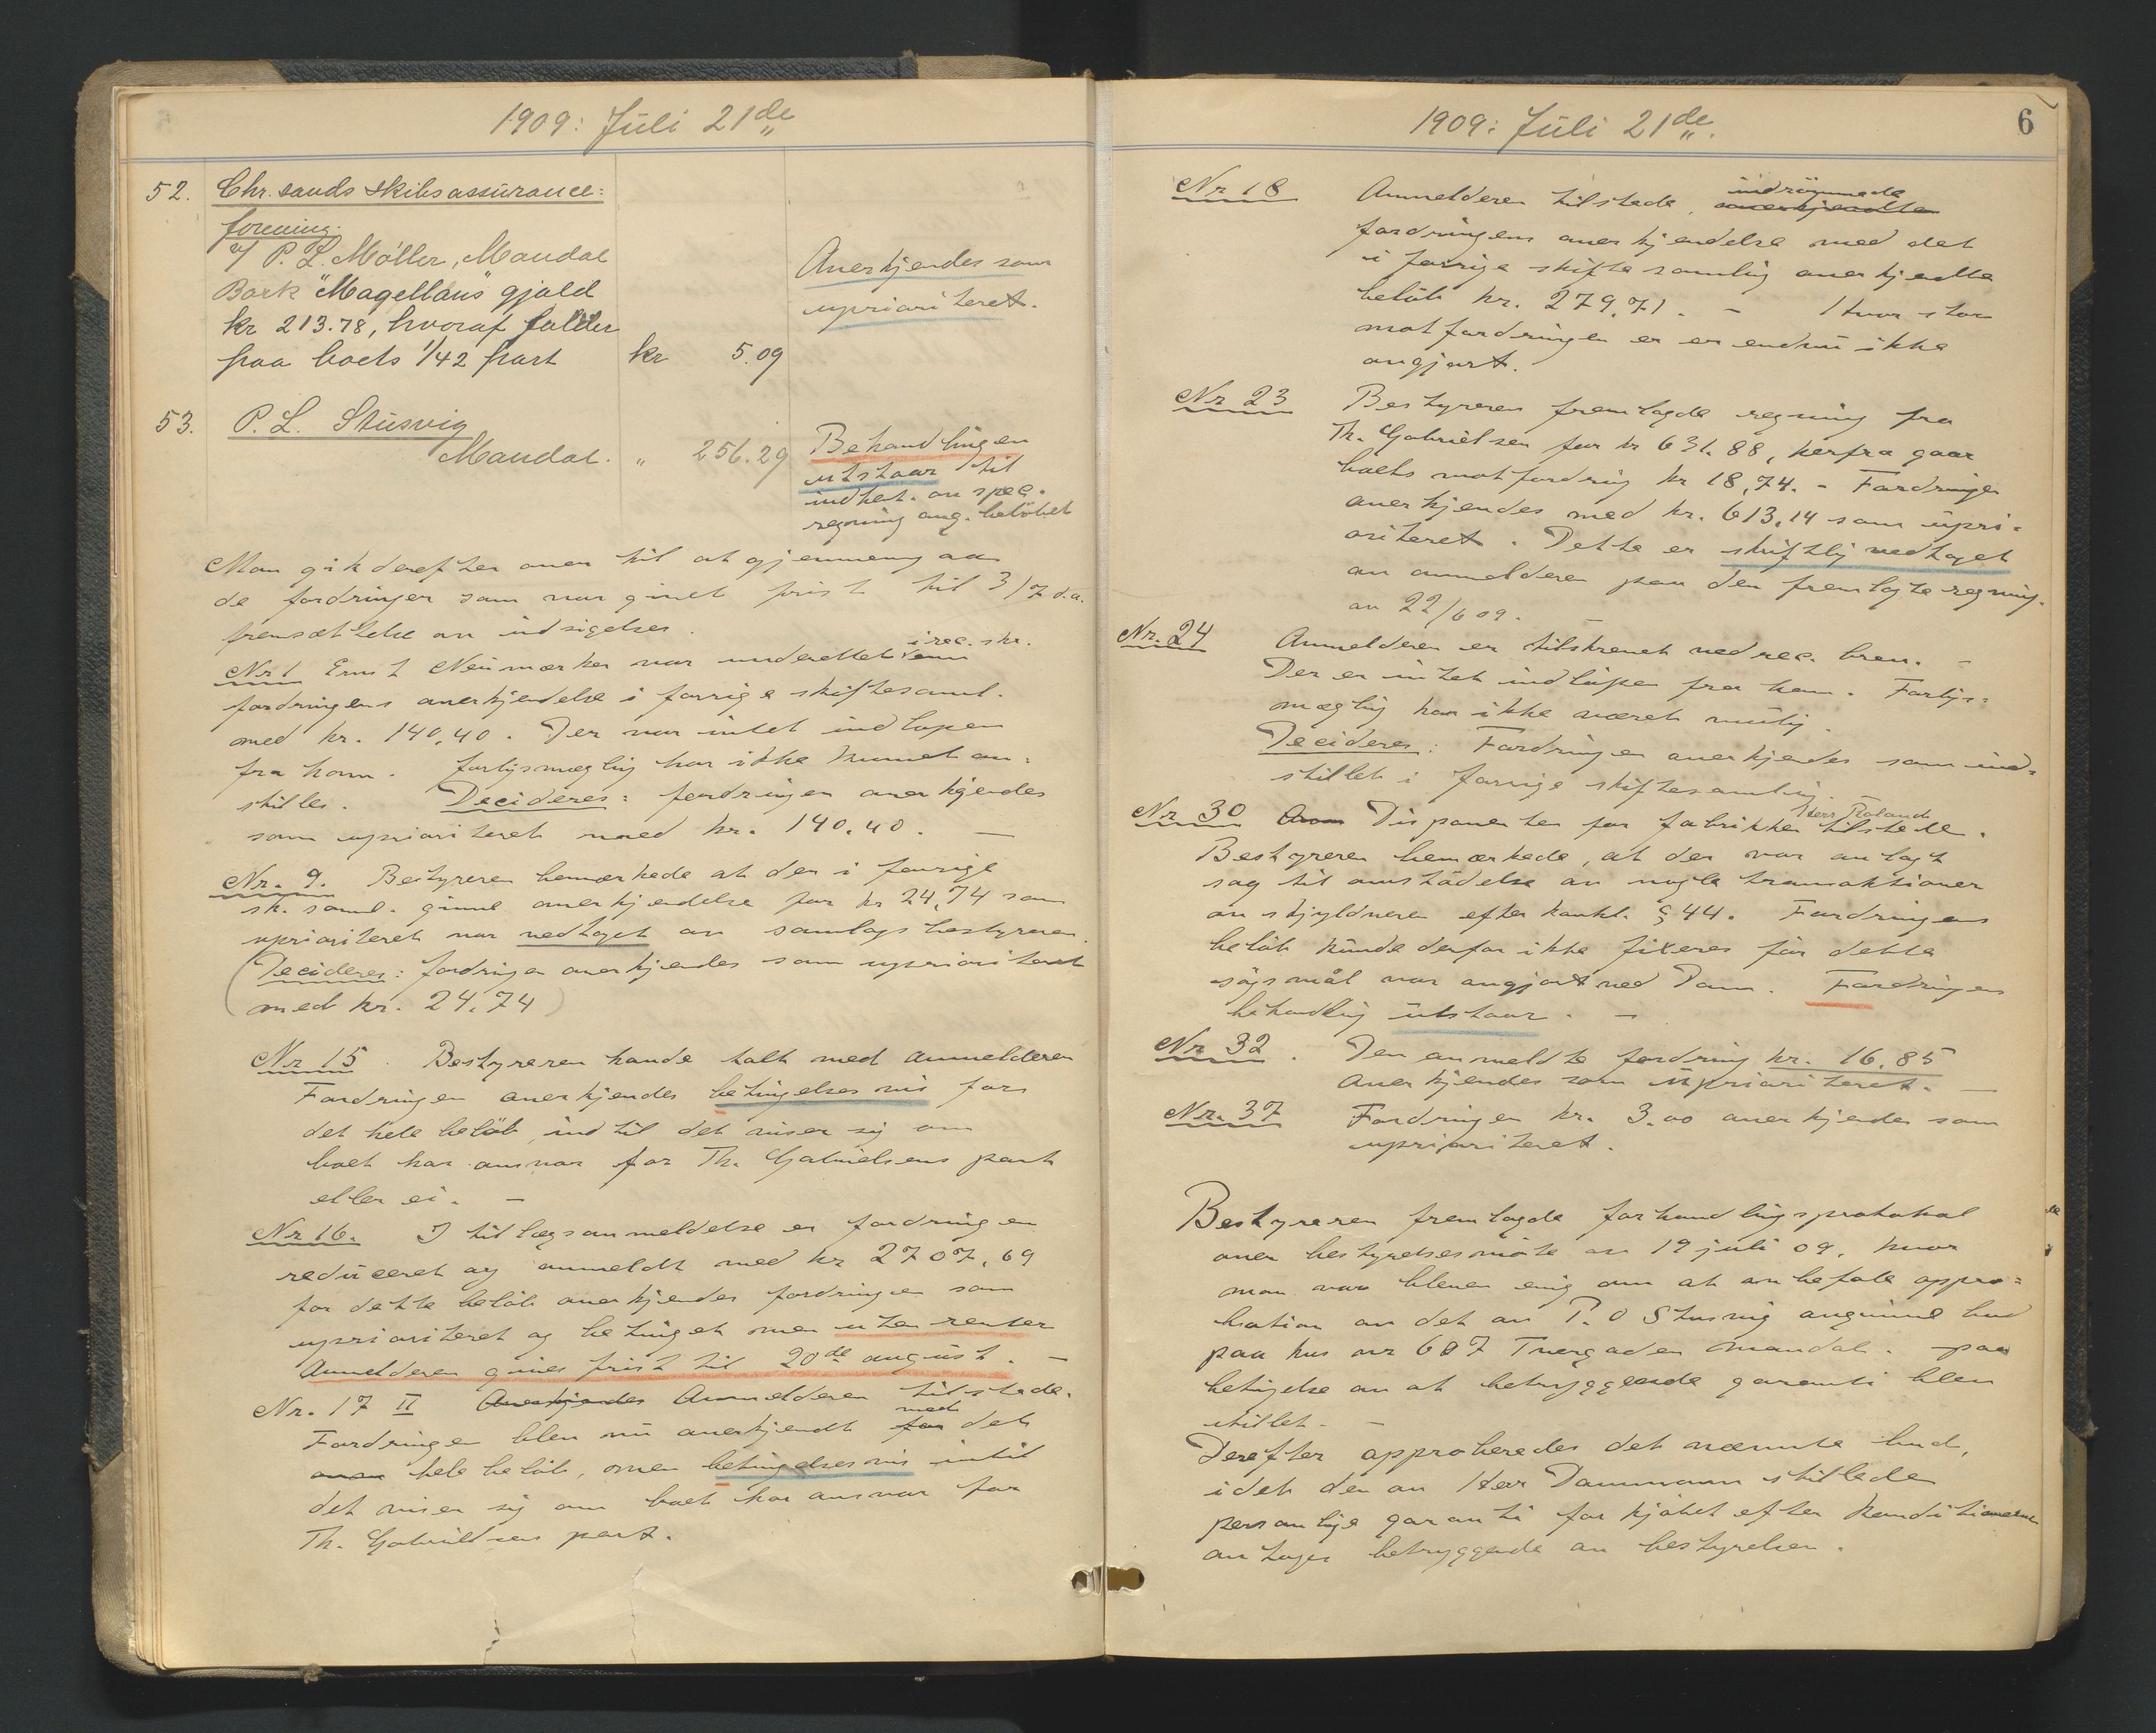 1909: Juli 21de
52. Chr. sands skibsassurance=
forening.
v/ P. L. Møller, Mandal
Bark "Magellans" gjæld
kr 213.78, hvoraf falder
paa boets 1/42 part kr 5.09
Anerkjendes som
uprioriteret.
53. P. L. Stusvig
Mandal. " 256.29
Behandlingen
utstaar til
indhent. av spec.
regning ang. beløbet
Man gik derefter over til at gjennemgaa
de fordringer som var givet frist til 3/7 d.a.
fremsættelse av indsigelser.
i rec. skr.
Nr 1 Ernst Neumærker var underettet om
fordringens anerkjendelse i forrige skiftesaml.
med kr. 140,40. Der var intet indløpen
fra ham. forligsmægling har ikke kunnet an=
stilles. Decideres: fordringen anerkjendes
som uprioriteret med kr. 140.40. —
Nr. 9. Bestyreren bemerkede at den i forrige
sk. saml. givne anerkjendelse for kr 24,74 som
uprioriteret var vedtaget av samlagsbestyreren.
(Decideres: fordringen anerkjendes som uprioriteret
med kr. 24.74)
Nr 15. Bestyreren havde talt med anmelderen
Fordringen anerkjendes betingelsesvis for
det hele beløb, indtil det viser sig om
boet har ansvar for Th. Gabrielsens part
eller ei. —
Nr 16. I tillægsanmeldelse er fordringen
reduceret og anmeldt med kr 2707,69
for dette beløb anerkjendes fordringen som
uprioriteret og betinget men uten renter
Anmelderen gives frist til 20de august. —
Nr. 17 II Anerkjendes Anmelderen tilstede.
med
Fordringen blev nu anerkjendt for det
hele beløb, men betingelsesvis intil
det viser sig om boet har ansvar for
Th. Gabrielsens part.
1909: Juli 21de.
6
indrømmede
Nr 18 Anmelderen tilstede, anerkjendte
fordringens anerkjendelse med det
i forrige skiftesamling anerkjendte
beløb kr. 279,71. - Hvor stor
motfordringen er er endnu ikke
avgjort.
Nr 23 Bestyreren fremlagde regning fra
Th. Gabrielsen for kr 631.88, herfra gaar
boets motfordring kr 18,74. - Fordringen
anerkjendes med kr. 613,14 som upri=
oriteret. Dette er skriftlig vedtaget
av anmelderen paa den fremlagte regning.
av 22/6 09.
Nr. 24 Anmelderen er tilskrevet ved rec. brev. —
Der er intet indløpen fra ham. Forligs=
mægling har ikke været mulig.
Decideres: Fordringen anerkjendes som ind=
stillet i forrige skiftesamling.
Herr Roland
Nr 30 Disponenten for fabrikken tilstede.
Bestyreren bemerkede, at der var anlagt
sag til omstødelse av nogle transaktioner
av skyldneren efter konkl. § 44. Fordringens
beløb kunde derfor ikke fixeres før dette
søgsmål var avgjort ved Dom. Fordringens
behandling utstaar. —
Nr 32. Den anmeldte fordring kr. 16,85
anerkjendes som uprioriteret. —
Nr. 37 Fordringen kr. 3.00 anerkjendes som
uprioriteret.
Bestyreren fremlagde forhandlingsprotokol
over bestyrelsesmøte av 19 juli 09, hvor
man var bleven enig om at anbefale appro=
bation av det av P. O Stusvig avgivne bud
paa hus nr 687 Tvergaden Mandal. - paa
betingelse av at betryggende garanti blev
stillet. —
Derefter approberedes det nævnte bud,
idet den av Herr Dammann stillede
personlige garanti for kjøbet efter konditionerne
antages betryggende av bestyrelsen.